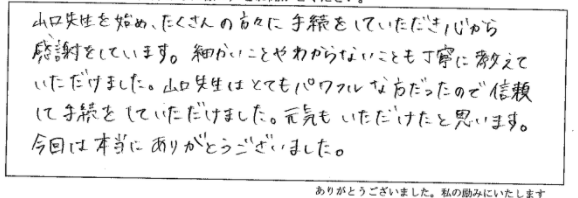 山口先生を始め、たくさんの方々に手続をしていただき心から
感謝をしています。細かいことやわからないことも丁寧に教えて
いただけました。山口先生はとてもパワフルな方だったので信頼
して手続をしていただけました。元気もいただけたと思います。
今回は本当にありがとうございました。
ありがとうございました。私の励みにいたします